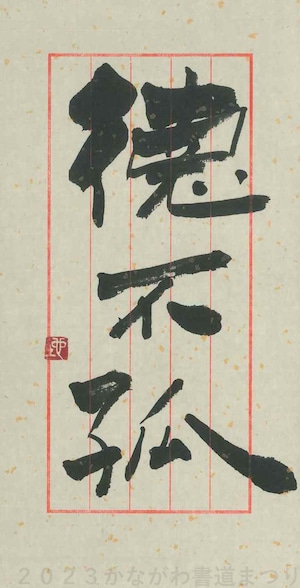 徳不孤
2023かながわ書道まつり